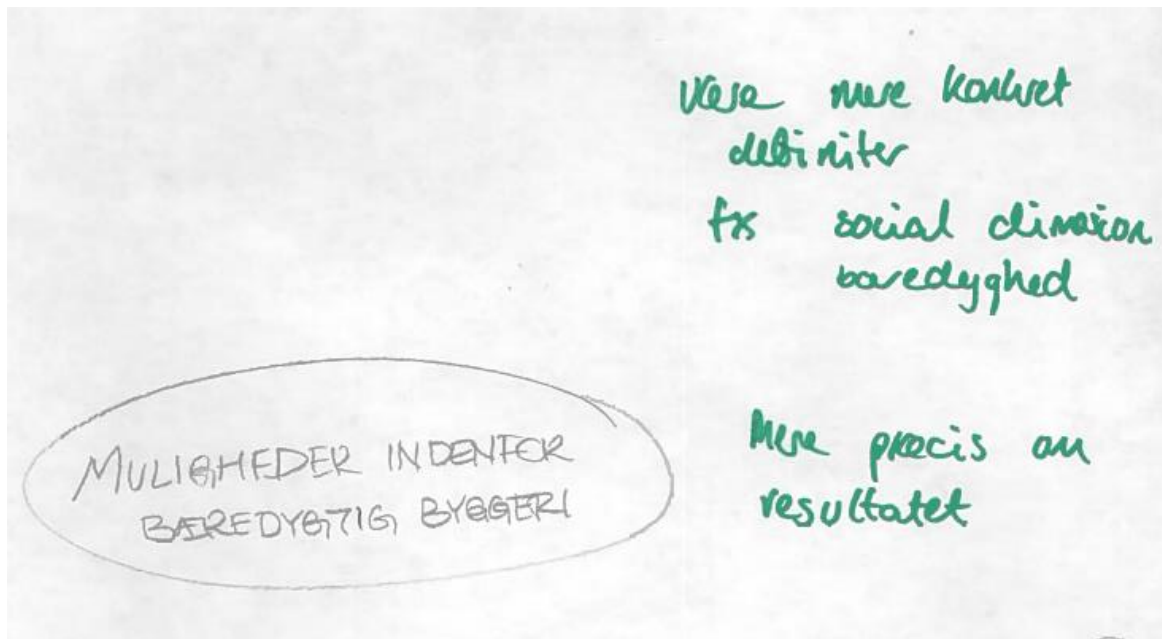 Være mere konkret
definiter
fx social dimension
bæredyghed
MULIGHEDER INDENFOR
BÆREDYGTIG BYGGERI
Mere præcis om
resultatet